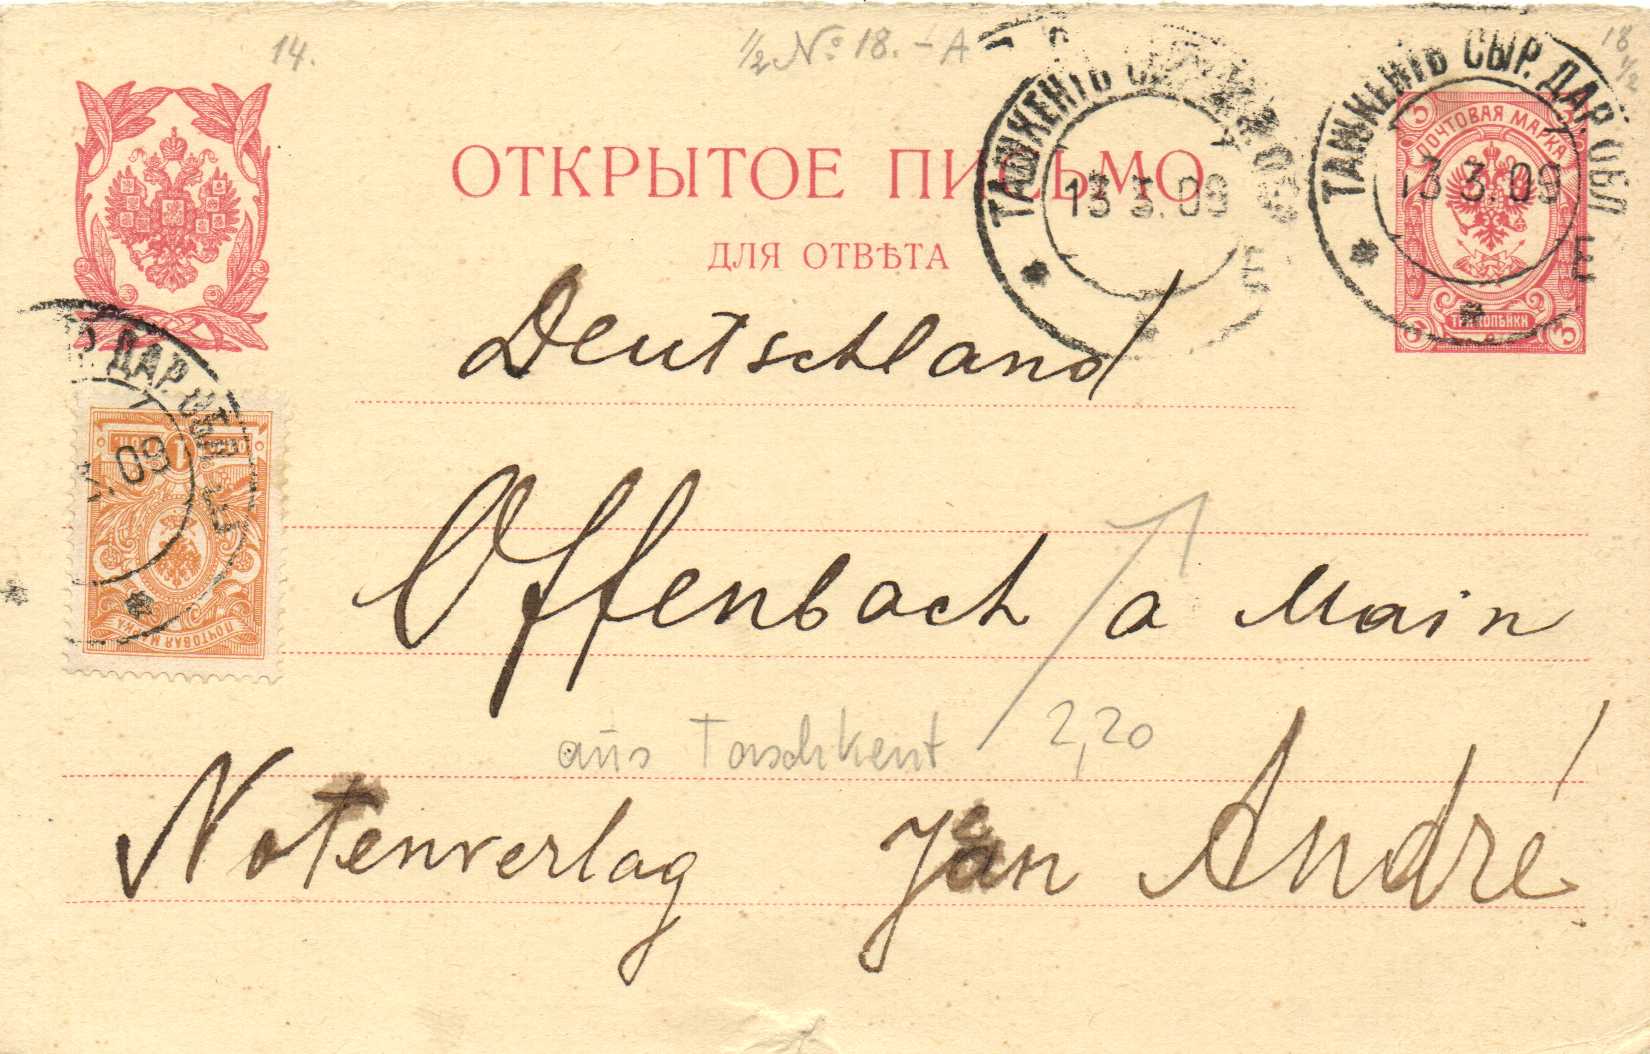 14.
½ № 18. – A
18 ½
ТАШКЕНТЪ СЫР. ДАР. ОБ
13 3. 09
Е
ТАШКЕНТЪ СЫР. ДАР. ОБЛ
13 3. 09
Е
3 3
ПОЧТОВАЯ МАРКА
ТРИ КОПѢЙКИ
3 3
ОТКРЫТОЕ ПИСЬМО
ДЛЯ ОТВѢТА
Deutschland
ДАР.
09
1
ПОЧТОВАЯ МАРКА
Offenbach a Main
aus Taschkent 2,20
Notenverlag Jan André